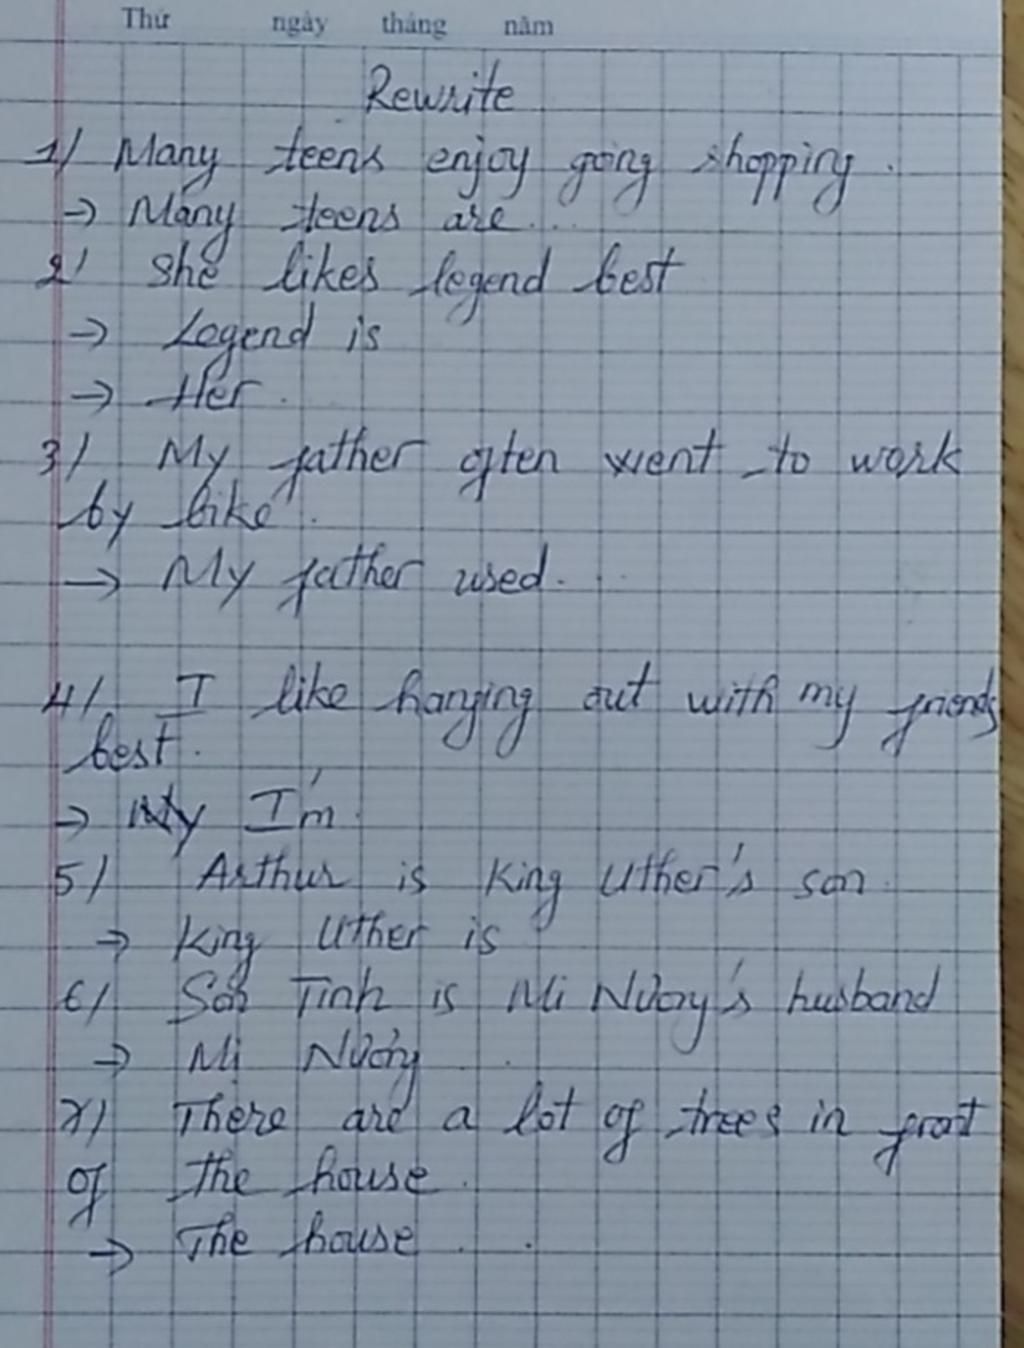 Thứ ngày tháng năm
Rewrite
1/ Many teens enjoy going shopping.
→ Many teens are...
2/ She likes legend best
→ Legend is
→ Her.
3/ My father often went to work
by bike.
→ My father used...
4/ I like hanging out with my friends
best.
→ My I'm.
5/ Arthur is King Uther's son
→ King Uther is
6/ Sơn Tinh is Mi Nương's husband
→ Mị Nương
7/ There are a lot of trees in front
of the house.
→ The house . .